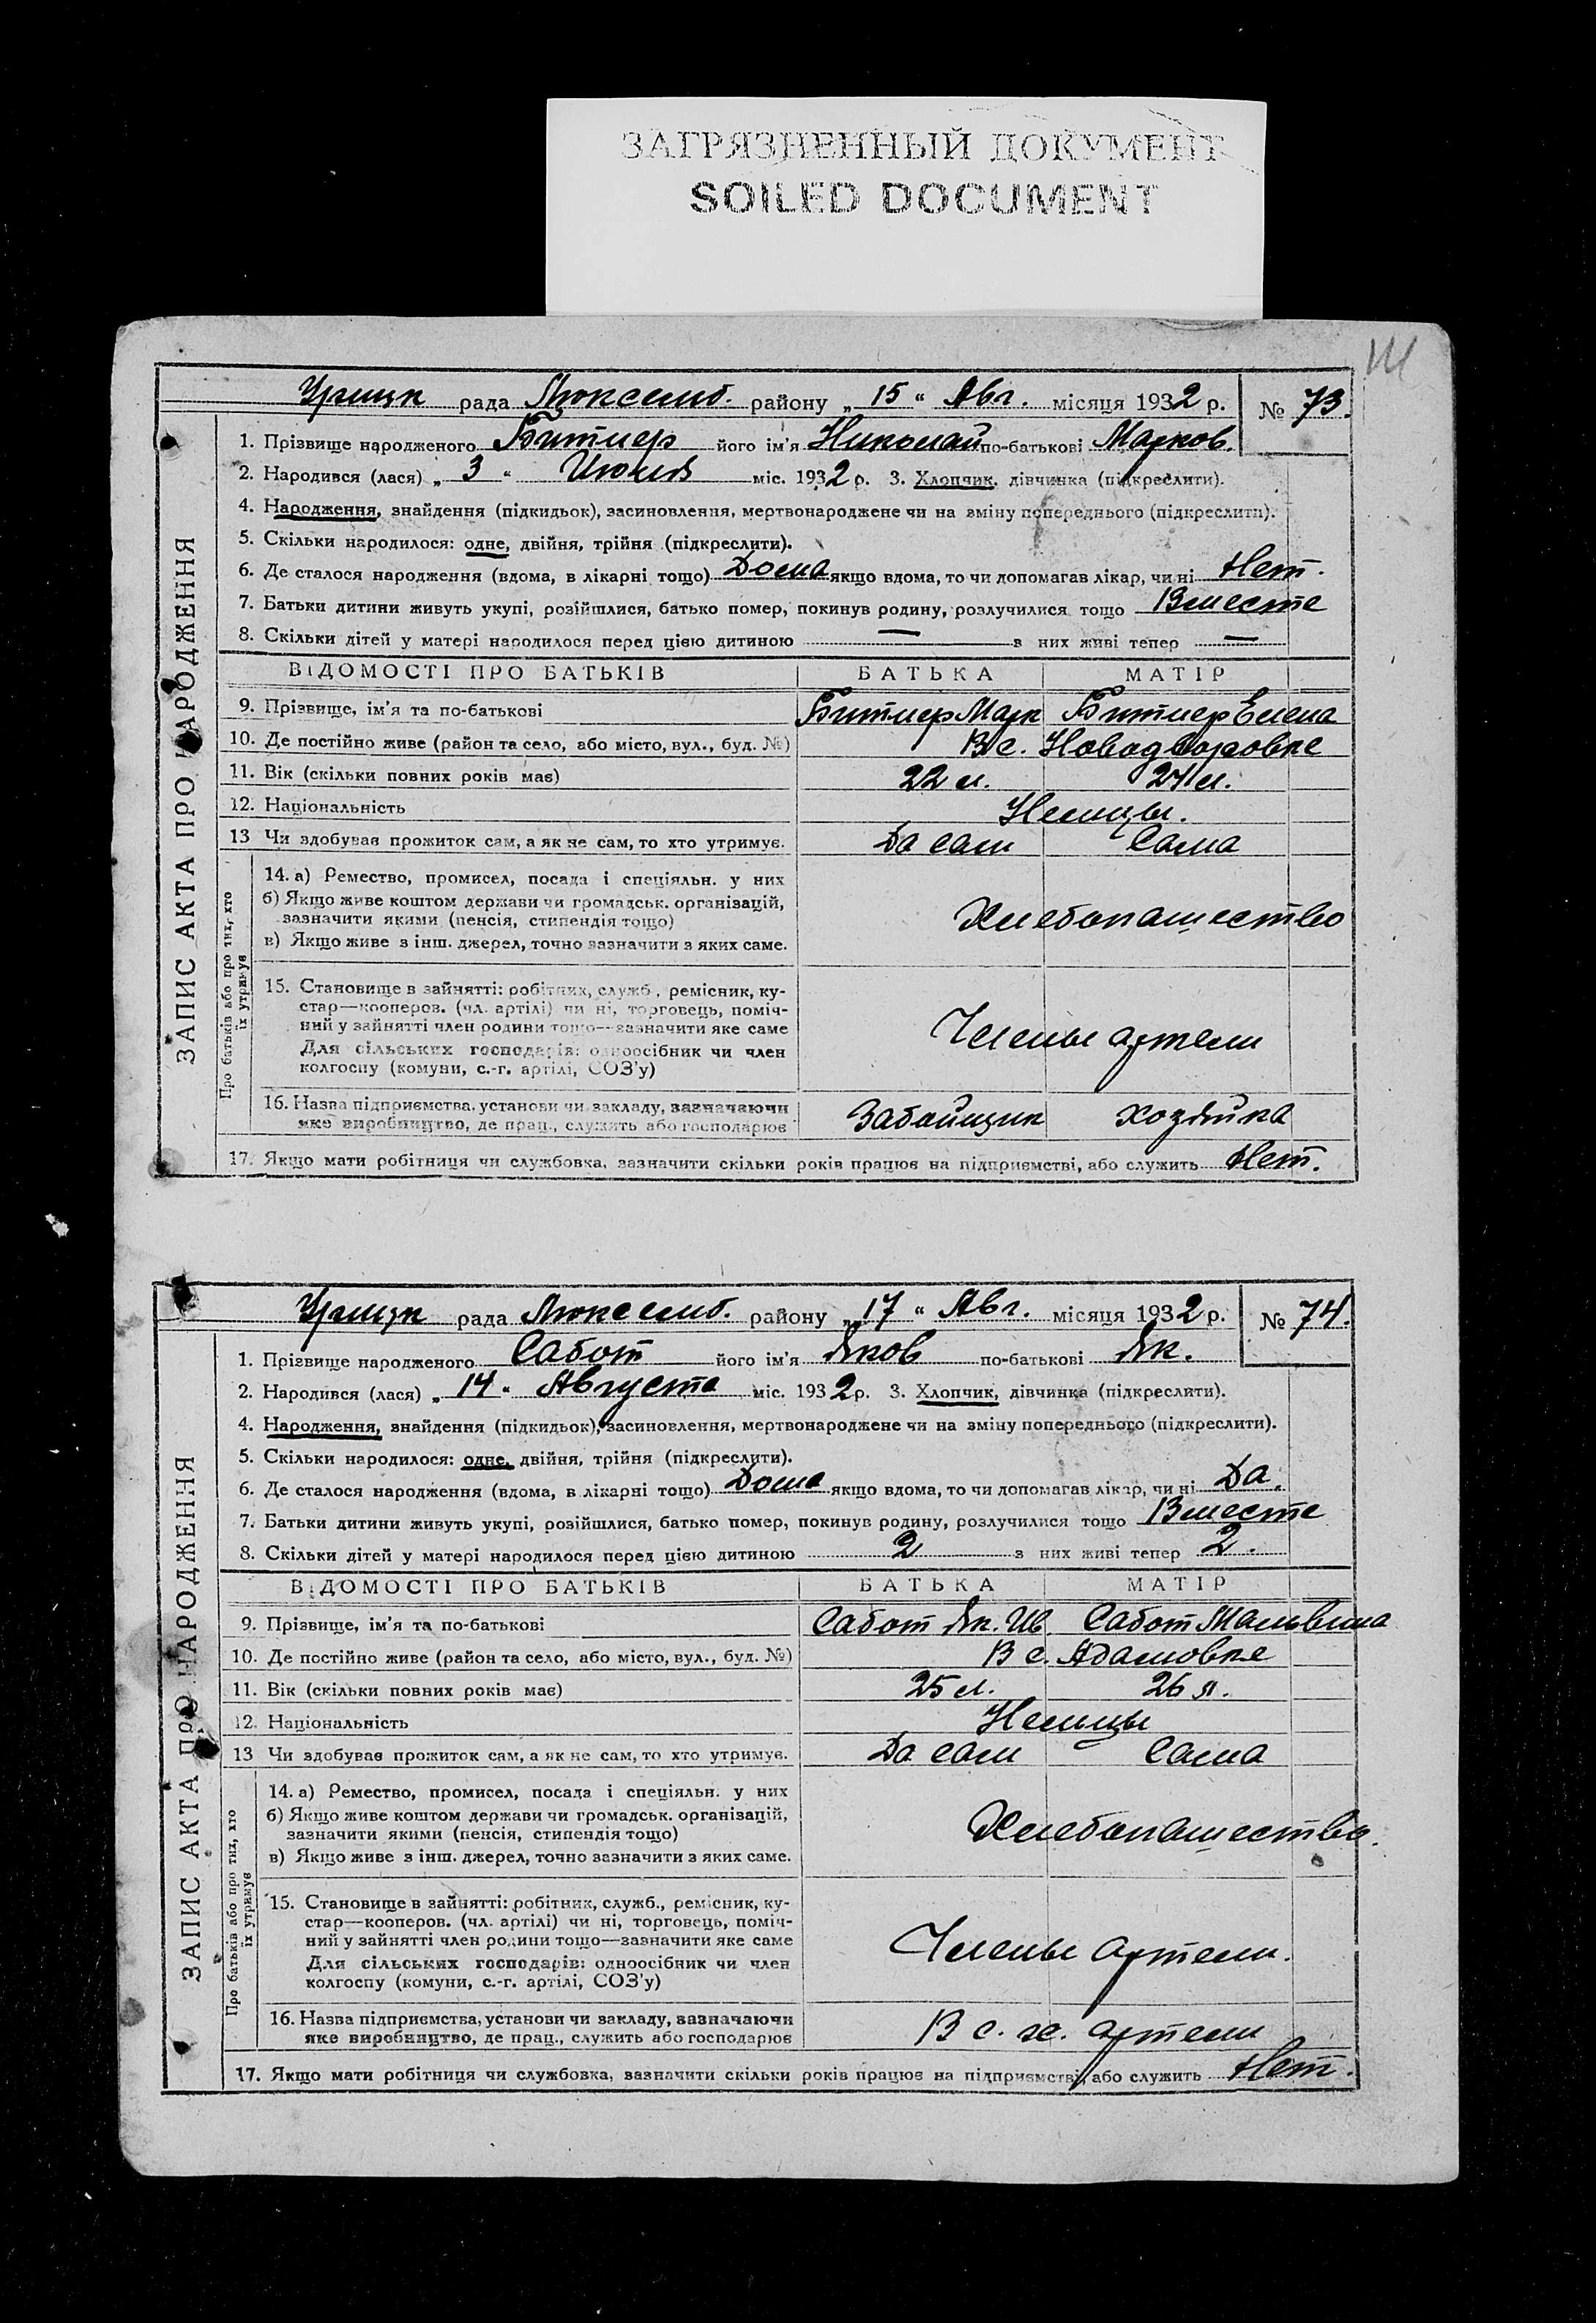 ЗАГРЯЗНЕННЫЙ ДОКУМЕНТ
SOILED DOCUMENT
Урицк рада Люксемб. району „ 15 “ Авг. місяця 1932 р. № 73.
ЗАПИС АКТА ПРО НАРОДЖЕННЯ
1. Прізвище народженого Битнер його ім'я Николай по-батькові Марков.
2. Народився (лася) „ 3 “ Июля міс. 1932 р. 3. Хлопчик, дівчинка (підкреслити).
4. Народження, знайдення (підкидьок), засиновлення, мертвонароджене чи на зміну попереднього (підкреслити).
5. Скільки народилося: одне, двійня, трійня (підкреслити).
6. Де сталося народження (вдома, в лікарні тощо) Дома якщо вдома, то чи допомагав лікар, чи ні Нет.
7. Батьки дитини живуть укупі, розійшлися, батько помер, покинув родину, розлучилися тощо Вместе
8. Скільки дітей у матері народилося перед цією дитиною — з них живі тепер —
ВІДОМОСТІ ПРО БАТЬКІВ БАТЬКА МАТІР
9. Прізвище, ім'я та по-батькові Битнер Марк Битнер Елена
10. Де постійно живе (район та село, або місто, вул., буд. №) В с. Новодворовке
11. Вік (скільки повних років має) 22 л. 24 л.
12. Національність Немцы.
13 Чи здобував прожиток сам, а як не сам, то хто утримує. Да сам Сама
Про батьків або про тих, хто їх утримує
14. а) Ремество, промисел, посада і спеціяльн. у них
б) Якщо живе коштом держави чи громадськ. організацій,
зазначити якими (пенсія, стипендія тощо) Хлебопашество
в) Якщо живе з інш. джерел, точно зазначити з яких саме.
15. Становище в зайнятті: робітник, служб., ремісник, ку-
стар—кооперов. (чл. артілі) чи ні, торговець, поміч-
ний у зайнятті член родини тощо—зазначити яке саме Члены артели
Для сільських господарів: одноосібник чи член
колгоспу (комуни, с.-г. артілі, СОЗ'у)
16. Назва підприємства, установи чи закладу, зазначаючи
яке виробництво, де прац., служить або господарює Забойщик хозяйка
17. Якщо мати робітниця чи службовка, зазначити скільки років працює на підприємстві, або служить Нет.
Урицк рада Люксемб. району „ 17 “ Авг. місяця 1932 р. № 74.
ЗАПИС АКТА ПРО НАРОДЖЕННЯ
1. Прізвище народженого Сабот його ім'я Яков по-батькові Як.
2. Народився (лася) „ 14 “ Августа міс. 1932 р. 3. Хлопчик, дівчинка (підкреслити).
4. Народження, знайдення (підкидьок), засиновлення, мертвонароджене чи на зміну попереднього (підкреслити).
5. Скільки народилося: одне, двійня, трійня (підкреслити).
6. Де сталося народження (вдома, в лікарні тощо) Дома якщо вдома, то чи допомагав лікар, чи ні Да.
7. Батьки дитини живуть укупі, розійшлися, батько помер, покинув родину, розлучилися тощо Вместе
8. Скільки дітей у матері народилося перед цією дитиною 2 з них живі тепер 2.
ВІДОМОСТІ ПРО БАТЬКІВ БАТЬКА МАТІР
9. Прізвище, ім'я та по-батькові Сабот Як. Ив. Сабот Мальвина
10. Де постійно живе (район та село, або місто, вул., буд. №) В с. Адамовке
11. Вік (скільки повних років має) 25 л. 26 л.
12. Національність Немцы
13 Чи здобував прожиток сам, а як не сам, то хто утримує. Да сам Сама
Про батьків або про тих, хто їх утримує
14. а) Ремество, промисел, посада і спеціяльн. у них
б) Якщо живе коштом держави чи громадськ. організацій,
зазначити якими (пенсія, стипендія тощо) Хлебопашество.
в) Якщо живе з інш. джерел, точно зазначити з яких саме.
15. Становище в зайнятті: робітник, служб., ремісник, ку-
стар—кооперов. (чл. артілі) чи ні, торговець, поміч-
ний у зайнятті член родини тощо—зазначити яке саме Члены артели.
Для сільських господарів: одноосібник чи член
колгоспу (комуни, с.-г. артілі, СОЗ'у)
16. Назва підприємства, установи чи закладу, зазначаючи
яке виробництво, де прац., служить або господарює В с. хс. артели
17. Якщо мати робітниця чи службовка, зазначити скільки років працює на підприємстві, або служить Нет.